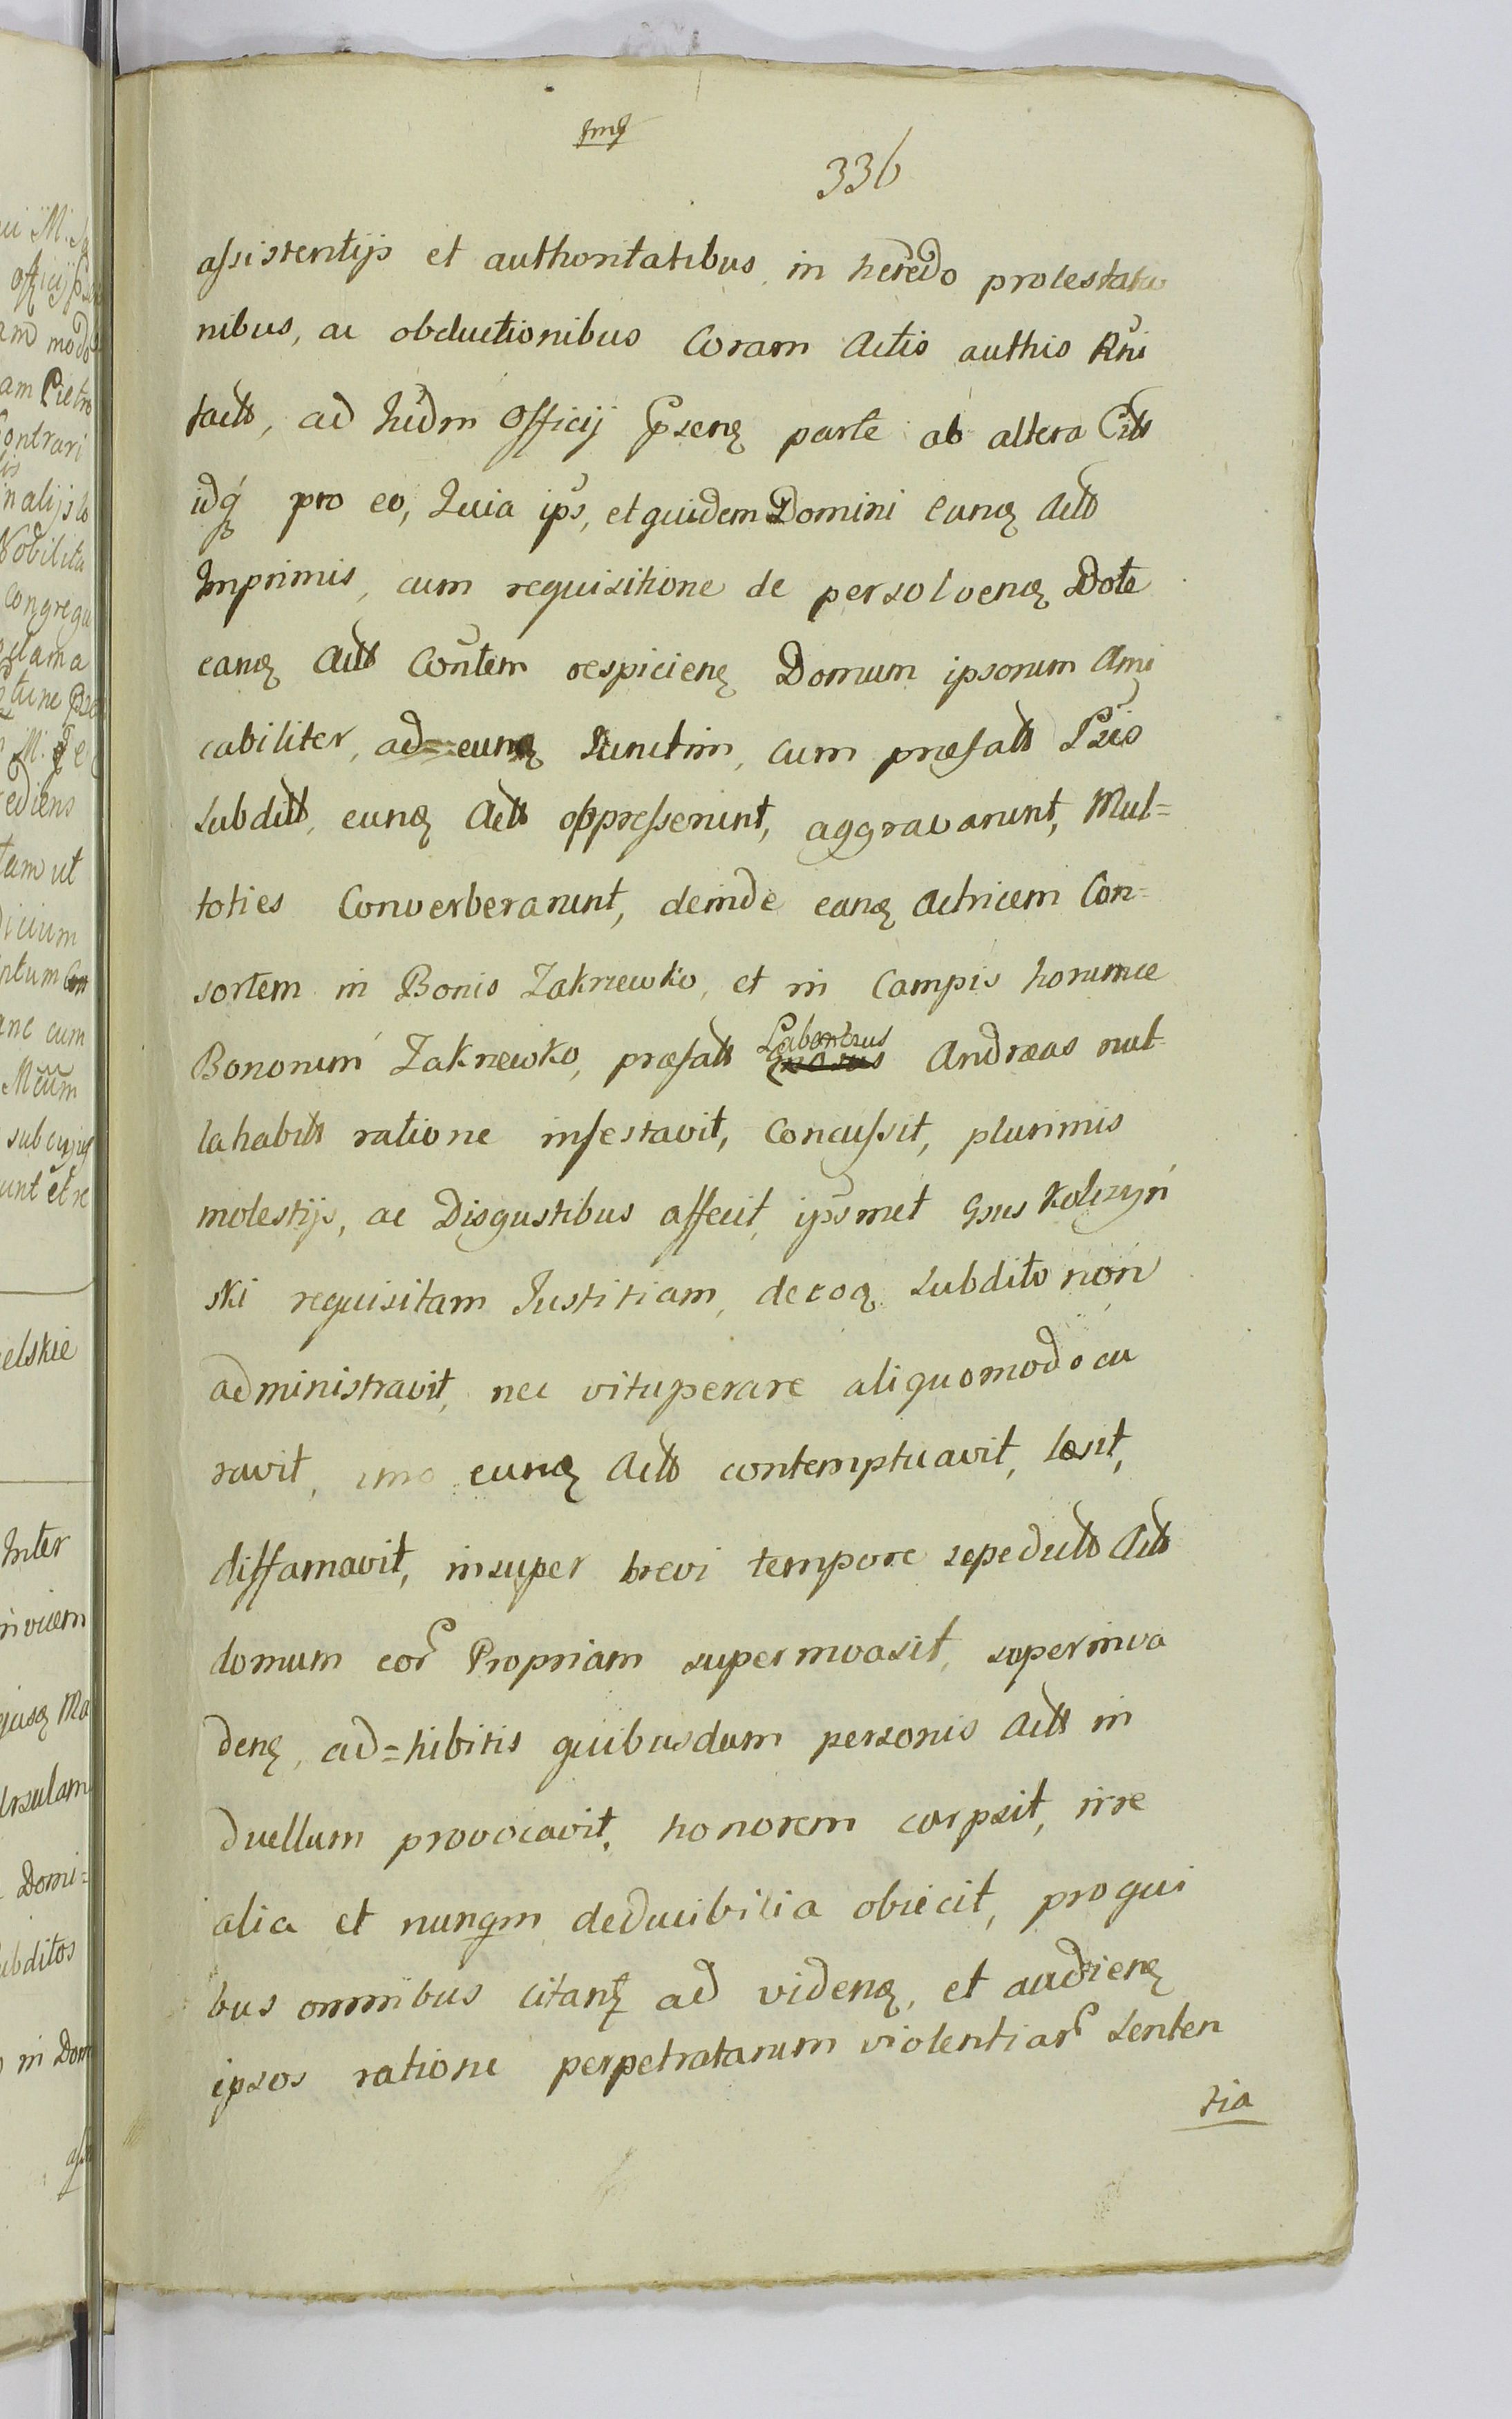 336
assistentijs et authoritatibus in heredo protestatio
nibus, ac obductionibus Coram Actis authis Rni
factt, ad hidm Officij parte ab altera Citt
idq pro eo, Quia ips, et quidem Domini eunq Actt
Imprimis, cum requisitione de persolvenq Dote
eanq Actt Contem respicienq Domum ipsorum Ami
cabiliter, ad=eunq Iunctim, cum præfatt
subditt, eunq Actt oppresserunt, aggravarunt, Mul=
toties Converberarunt, deinde eanq Actricem Con=
sortem in Bonis Zakrzewko, et in Campis horumce
Bonorum Zakrzewko, præfatt Laboriosus Andræas nul
la habitt ratione infestavit, Concussit, plurimis
molestijs, ac Disgustibus affecit, ipsmet Gsus Kolczyń
ski requisitam Justitiam, de eoq subdito non
administravit, nec vituperare aliquomodo cu
ravit, imo eunq Actt contemptuavit, læsit,
diffamavit, insuper brevi tempore sepedictt Actt
domum eor Propriam superinvasit, superinva
denq, ad=hibitis quibusdam personis Actt in
duellum provocavit, honorem carpsit, irre
alia et nunqm deducibilia obiecit, pro qui
bus omnibus citanq ad videnq, et audienq
ipsos ratione perpetratarum violentiar senten
tia